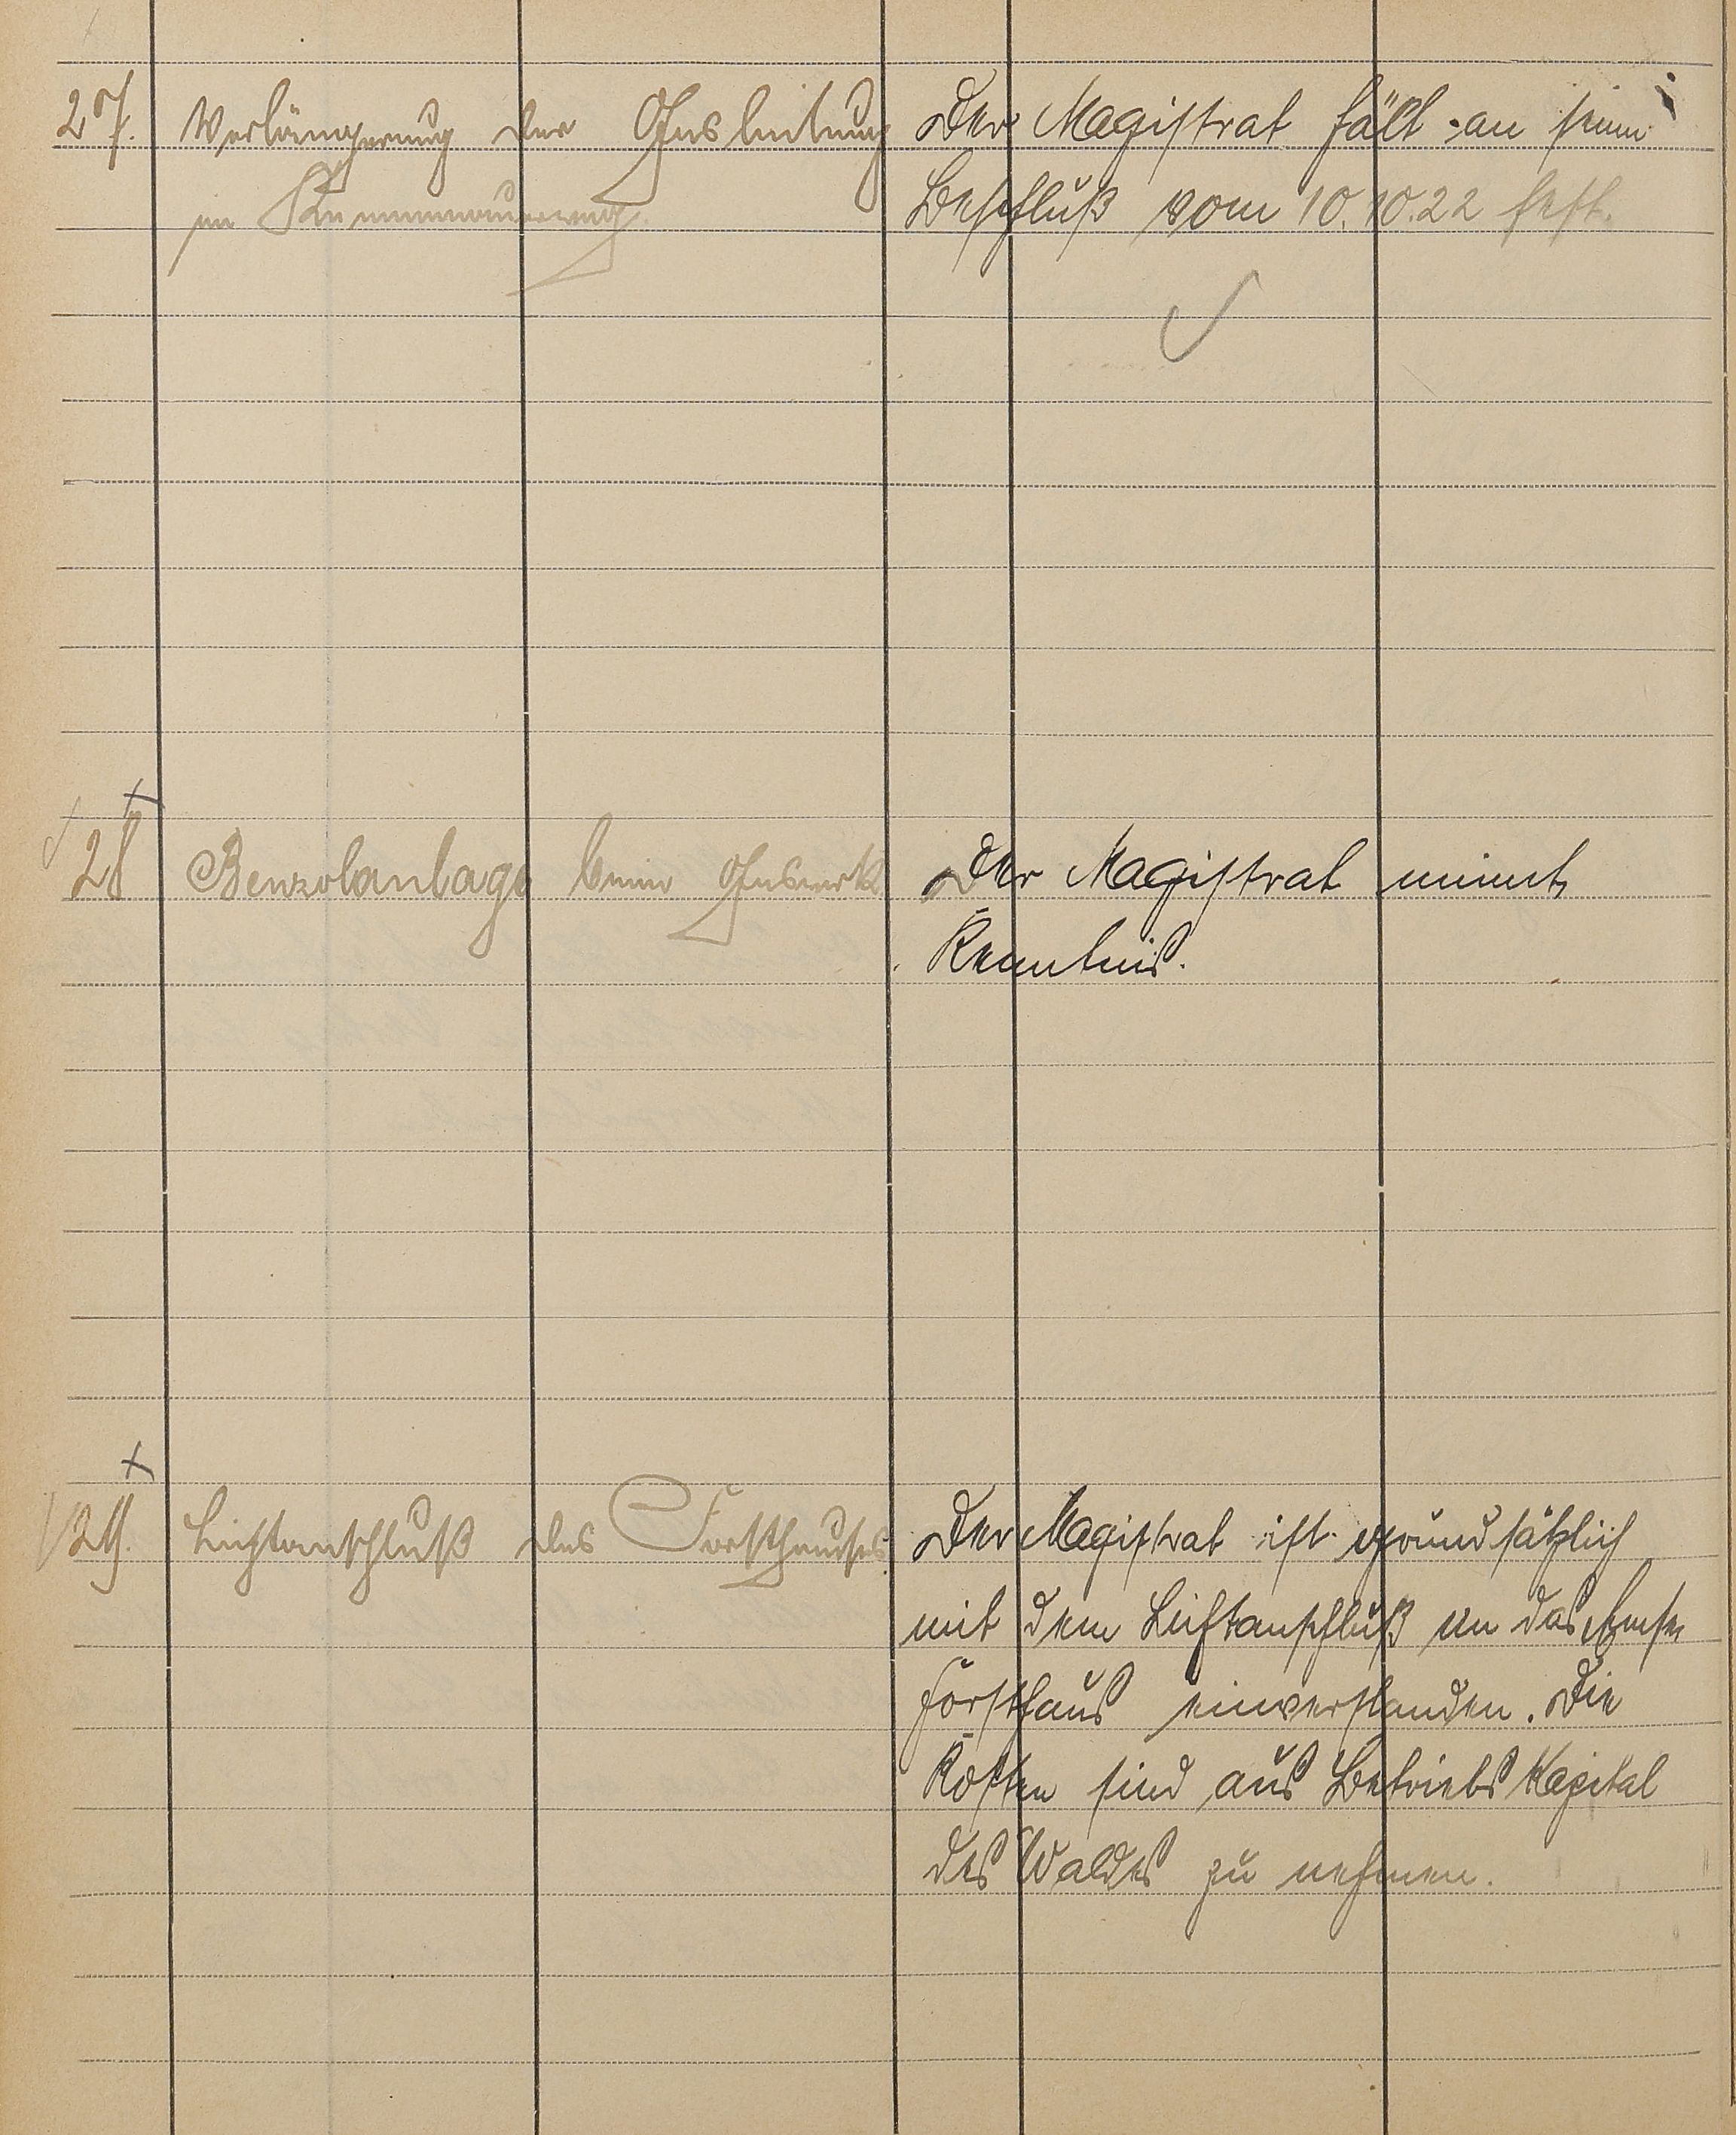 27. Verlängerung der Gasleitung
im
Der Magistrat hält an seinem
Beschluß vom 10.10.22 fest.
28 Benzolanlage beim Gaswerk
Der Magistrat nimmt
Kenntnis.
29. Lichtanschluß des Forsthauses.
Der Magistrat ist grundsätzlich
mit dem Lichtanschluß an das
Forsthaus einverstanden. Die
Kosten sind aus Betriebskapital
des Waldes zu nehmen.